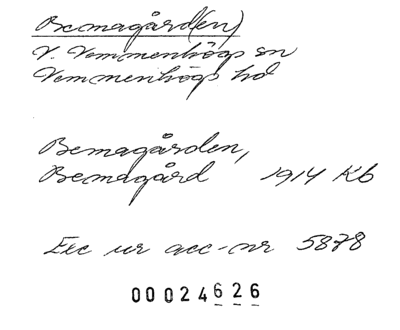 Bemagård(en)
V. Vemmenhögs sn
Vemmenhögs hd
Bemagården,
Bemagård 1914 Kb
Exc ur acc-nr 5878
00024626